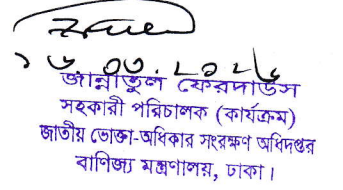 ১৬.০৩.২০২৬
জান্নাতুল ফেরদাউস
সহকারী পরিচালক (কার্যক্রম)
জাতীয় ভোক্তা-অধিকার সংরক্ষণ অধিদপ্তর
বাণিজ্য মন্ত্রণালয়, ঢাকা।